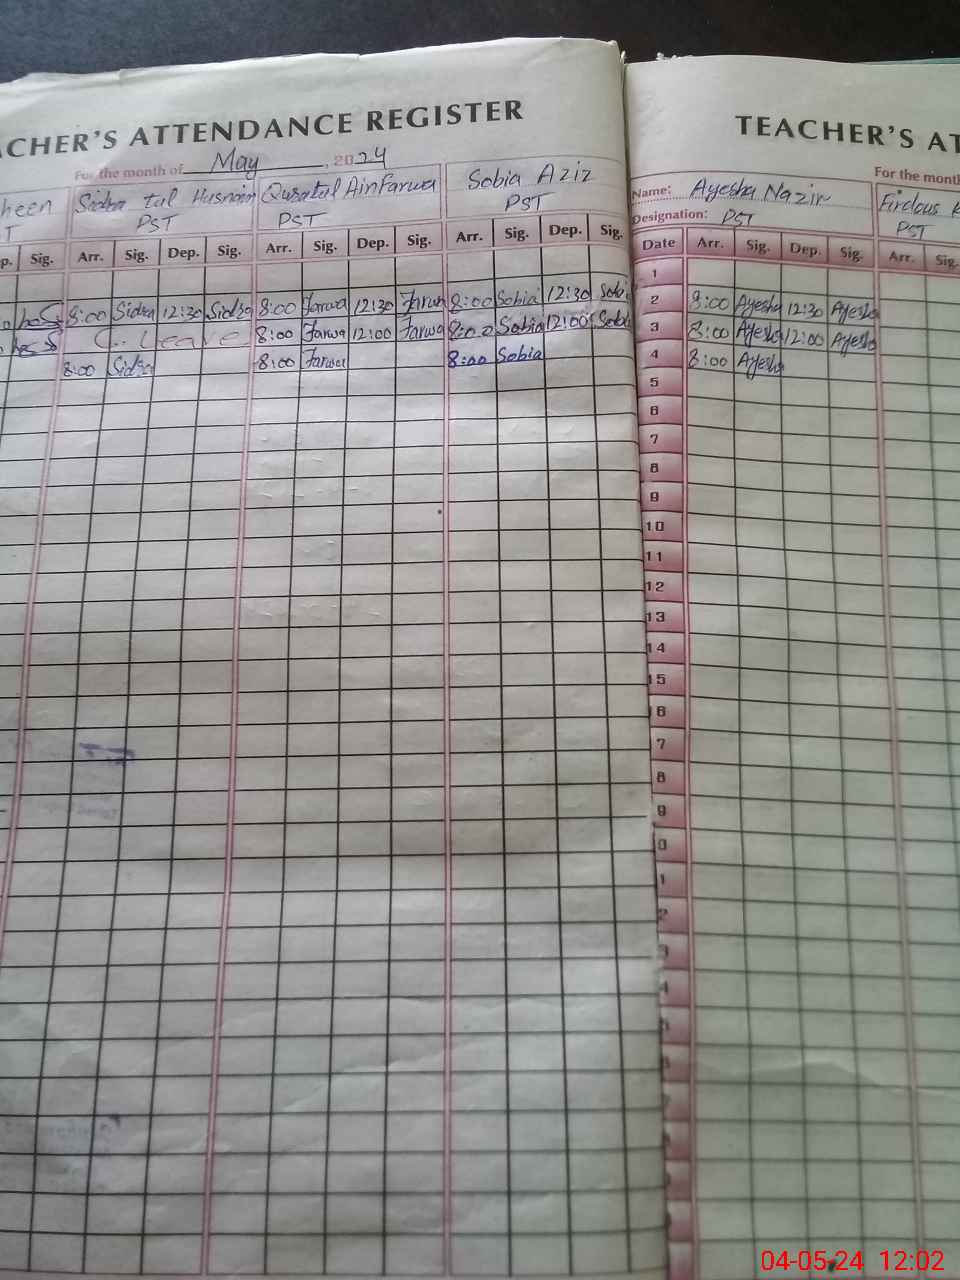 ACHER'S ATTENDANCE REGISTER
For the month of May, 2024
heen Sidra tul Husnain Quratul Ain Farwa Sobia Aziz
T PST PST PST
p. Sig. Arr. Sig. Dep. Sig. Arr. Sig. Dep. Sig. Arr. Sig. Dep. Sig.
8:00 Sidra 12:30 Sidra 8:00 Farwa 12:30 Farwa 8:00 Sobia 12:30 Sobi
C. Leave 8:00 Farwa 12:00 Farwa 8:00 Sobia 12:00 Sobi
8:00 Sidra 8:00 Farwa 8:00 Sobia
TEACHER'S AT
For the month
Name: Ayesha Nazir Firdous K
Designation: PST PST
Date Arr. Sig. Dep. Sig. Arr. Sig.
1
2 8:00 Ayesha 12:30 Ayesha
3 8:00 Ayesha 12:00 Ayesha
4 8:00 Ayesha
5
6
7
8
9
10
11
12
13
14
15
16
7
8
9
0
1
2
3
4
04-05-24 12:02